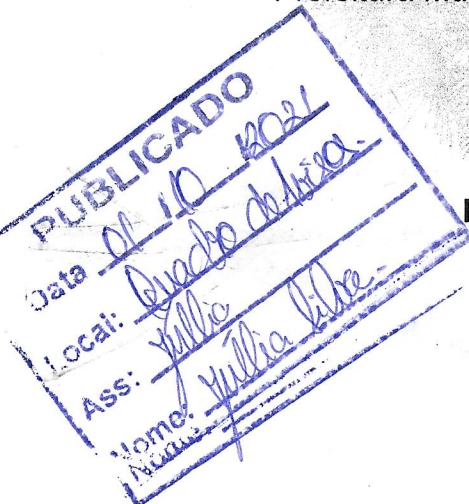 PUBLICADO
Data 01/10/2021
Local: Quadro de Aviso.
Ass: Júllia
Nome: Júllia Silva.